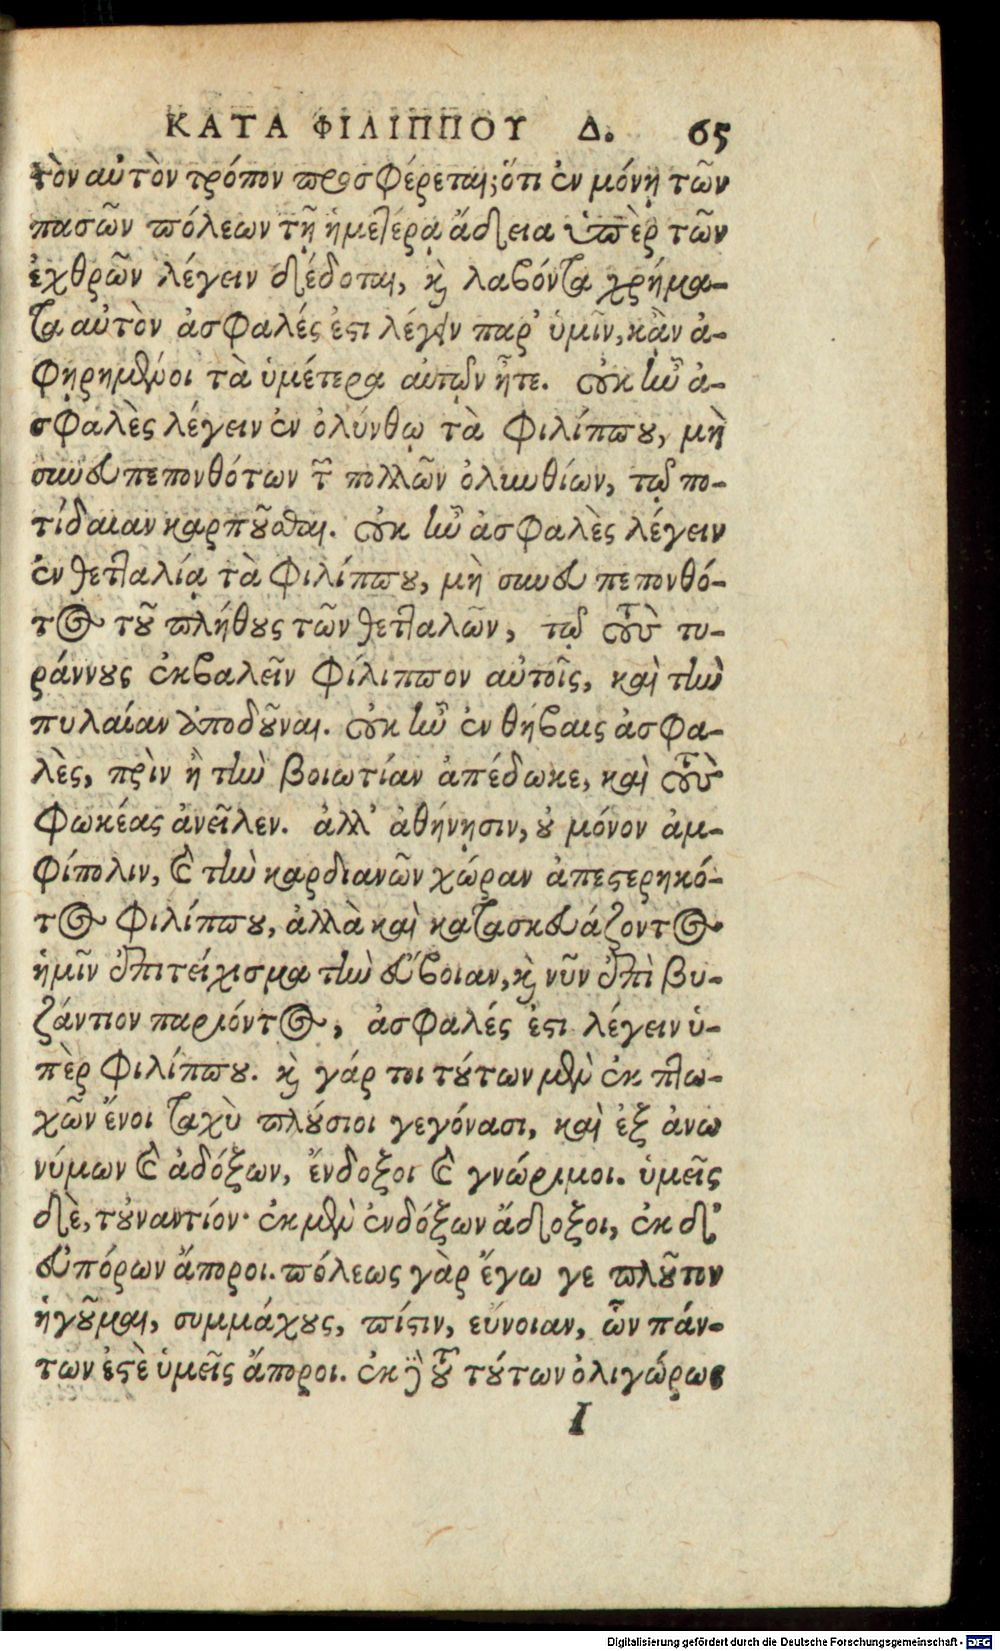 ΚΑΤΑ ΦΙΛΙΠΠΟΥ Δ. 65
τὸν αὐτὸν τρόπον προσφέρεται; ὅτι ἐν μόνῃ τῶν
πασῶν πόλεων τῇ ἡμετέρᾳ ἄδεια ὑπὲρ τῶν
ἐχθρῶν λέγειν δέδοται, καὶ λαβόντα χρήμα-
τα αὐτὸν ἀσφαλές ἐστι λέγειν παρ' ὑμῖν, κἂν ἀ-
φῃρημένοι τὰ ὑμέτερα αὐτῶν ἦτε. οὐκ ἦν ἀ-
σφαλὲς λέγειν ἐν ὀλύνθῳ τὰ Φιλίππου, μὴ
συνευπεπονθότων τῶν πολλῶν ὀλυνθίων, τῷ πο-
τίδαιαν καρποῦσθαι. οὐκ ἦν ἀσφαλὲς λέγειν
ἐν θετταλίᾳ τὰ Φιλίππου, μὴ συνευπεπονθό-
τος τοῦ πλήθους τῶν θετταλῶν, τῷ τοὺς τυ-
ράννους ἐκβαλεῖν Φίλιππον αὐτοῖς, καὶ τὴν
πυλαίαν ἀποδοῦναι. οὐκ ἦν ἐν θήβαις ἀσφα-
λὲς, πρὶν ἢ τὴν βοιωτίαν ἀπέδωκε, καὶ τοὺς
Φωκέας ἀνεῖλεν. ἀλλ' ἀθήνῃσιν, οὐ μόνον ἀμ-
φίπολιν, καὶ τὴν καρδιανῶν χώραν ἀπεστερηκό-
τος Φιλίππου, ἀλλὰ καὶ κατασκευάζοντος
ἡμῖν ἐπιτείχισμα τὴν εὔβοιαν, καὶ νῦν ἐπὶ βυ-
ζάντιον παριόντος, ἀσφαλές ἐστι λέγειν ὑ-
πὲρ Φιλίππου. καὶ γάρ τοι τούτων μὲν ἐκ πτω-
χῶν ἔνοι ταχὺ πλούσιοι γεγόνασι, καὶ ἐξ ἀνω
νύμων καὶ ἀδόξων, ἔνδοξοι καὶ γνώριμοι. ὑμεῖς
δὲ, τοὐναντίον· ἐκ μὲν ἐνδόξων ἄδοξοι, ἐκ δ'
εὐπόρων ἄποροι. πόλεως γὰρ ἔγω γε πλοῦτον
ἡγοῦμαι, συμμάχους, πίστιν, εὔνοιαν, ὧν πάν-
των ἐστὲ ὑμεῖς ἄποροι. ἐκ δὲ τοῦ τούτων ὀλιγώρως
I
Digitalisierung gefördert durch die Deutsche Forschungsgemeinschaft - DFG